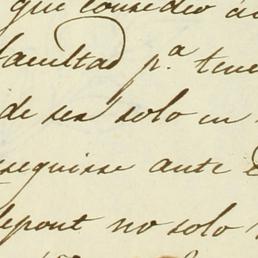 que concedio a
facultad p.a tene
de ser solo in
seguirse ante
depont no solo